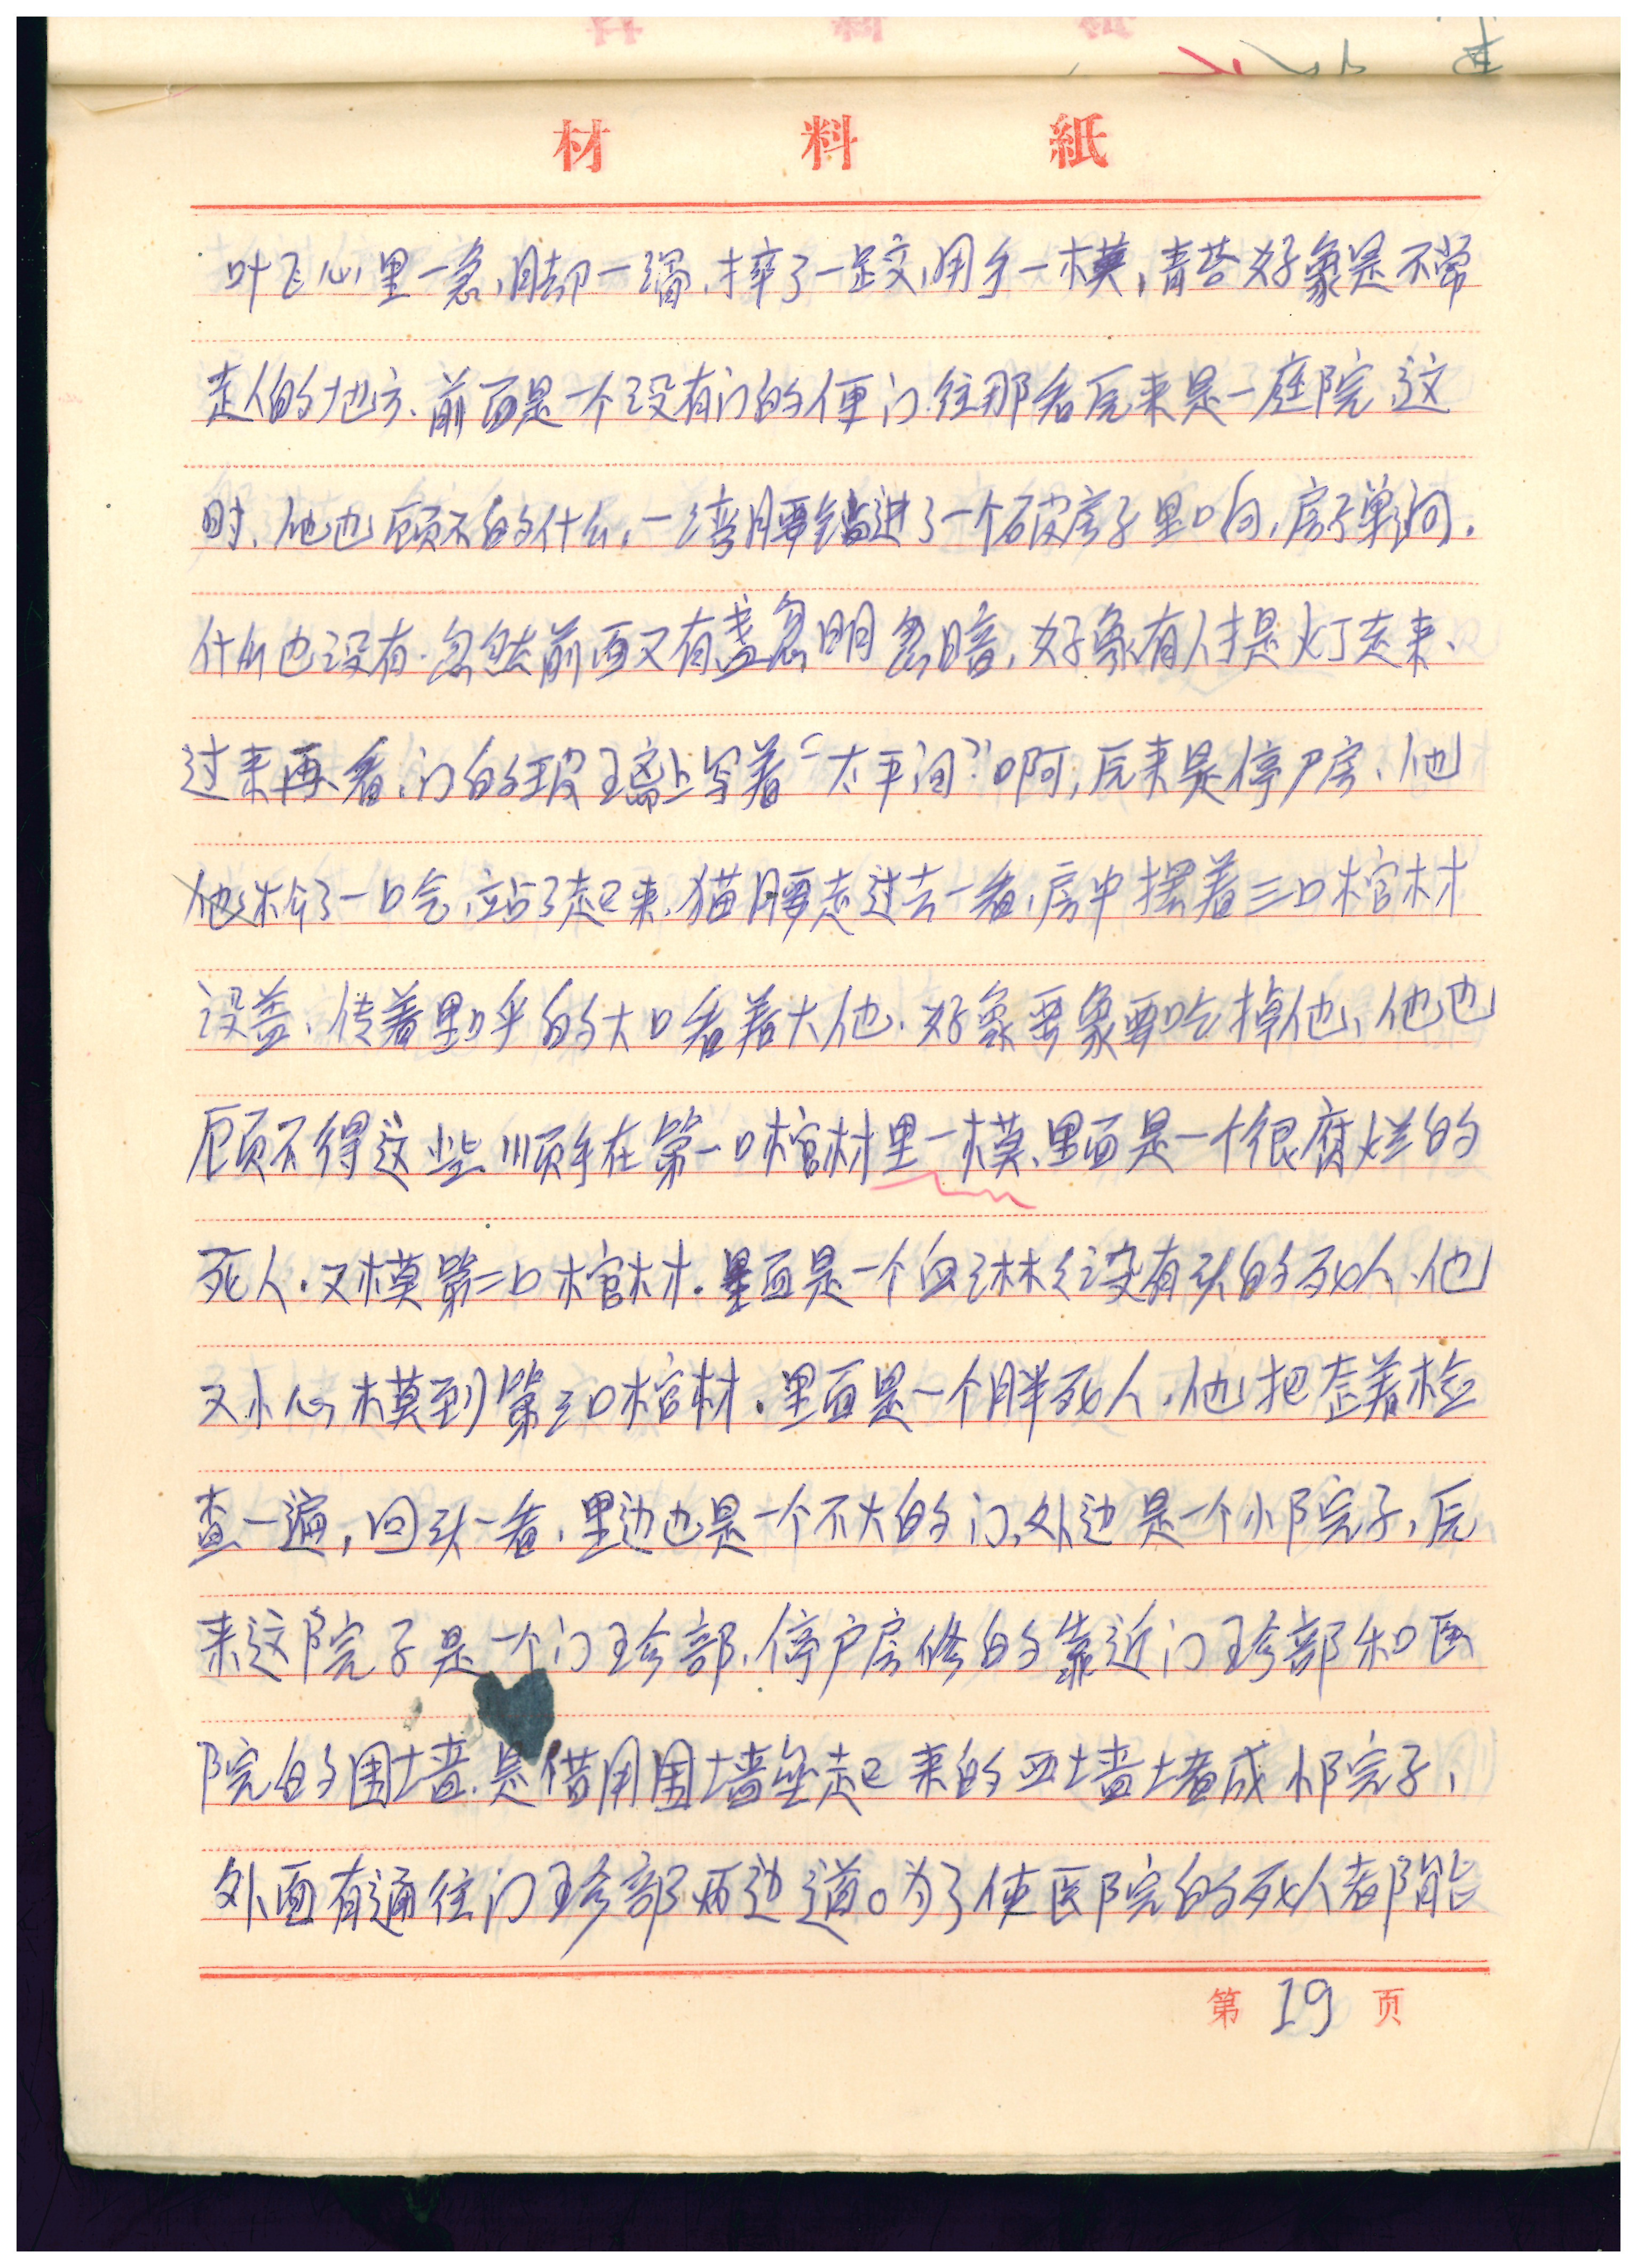 材料紙
叶飞心里一急,脚一滑,摔了一跤,用手一模,青苔好象是不常
走人的地方、前面是一个没有门的便门.往那看后来是一庭院、这
时、他也顾不的什么,一湾腰钻进了一个破房子里响,房子单间.
什么也没有.忽然前面又有盏忽明忽暗,好象有人提灯走来、
过来再看,门的玻璃上写着“太平间”.啊,后来是停尸房、他
他松了一口气,站了起来,猫腰走过去一看,房中摆着三口棺材
没盖、传着黑呼的大口看着大他、好象要象要吃掉他、他也
顾不得这些顺手在第一口棺材里一模、里面是一个很腐烂的
死人.又模第二口棺材.里面是一个血淋淋没有头的死人、他
又小心模到第三口棺材.里面是一个胖死人,他把查着检
查一遍,回头一看,里边也是一个不大的门,外边是一个小院子,后
来这院子是一个门珍部、停尸房修的靠近门珍部和医
院的围墙.是借用围墙垒起来的四墙墙成小院子,
外面有通往门珍部两边道。为了使医院的死人都能
第19页